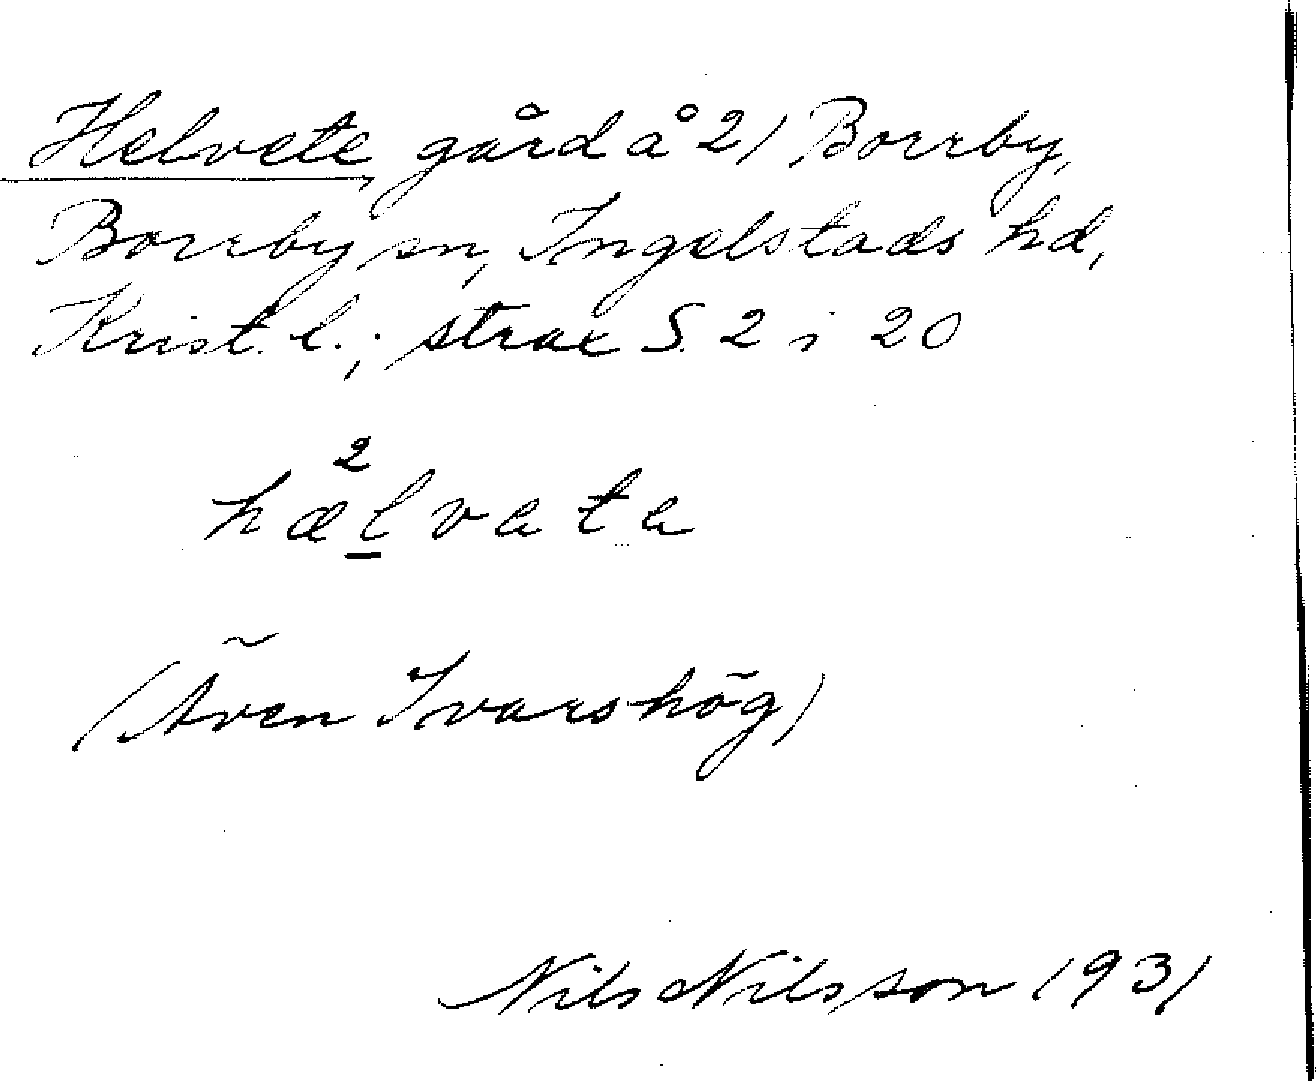 Helvete, gård å 21 Borrby,
Borrby sn, Ingelstads hd,
Krist. l.; strax S. 2 i 20
2
hælvata
(Även Ivarshög)
Nils Nilsson 1931